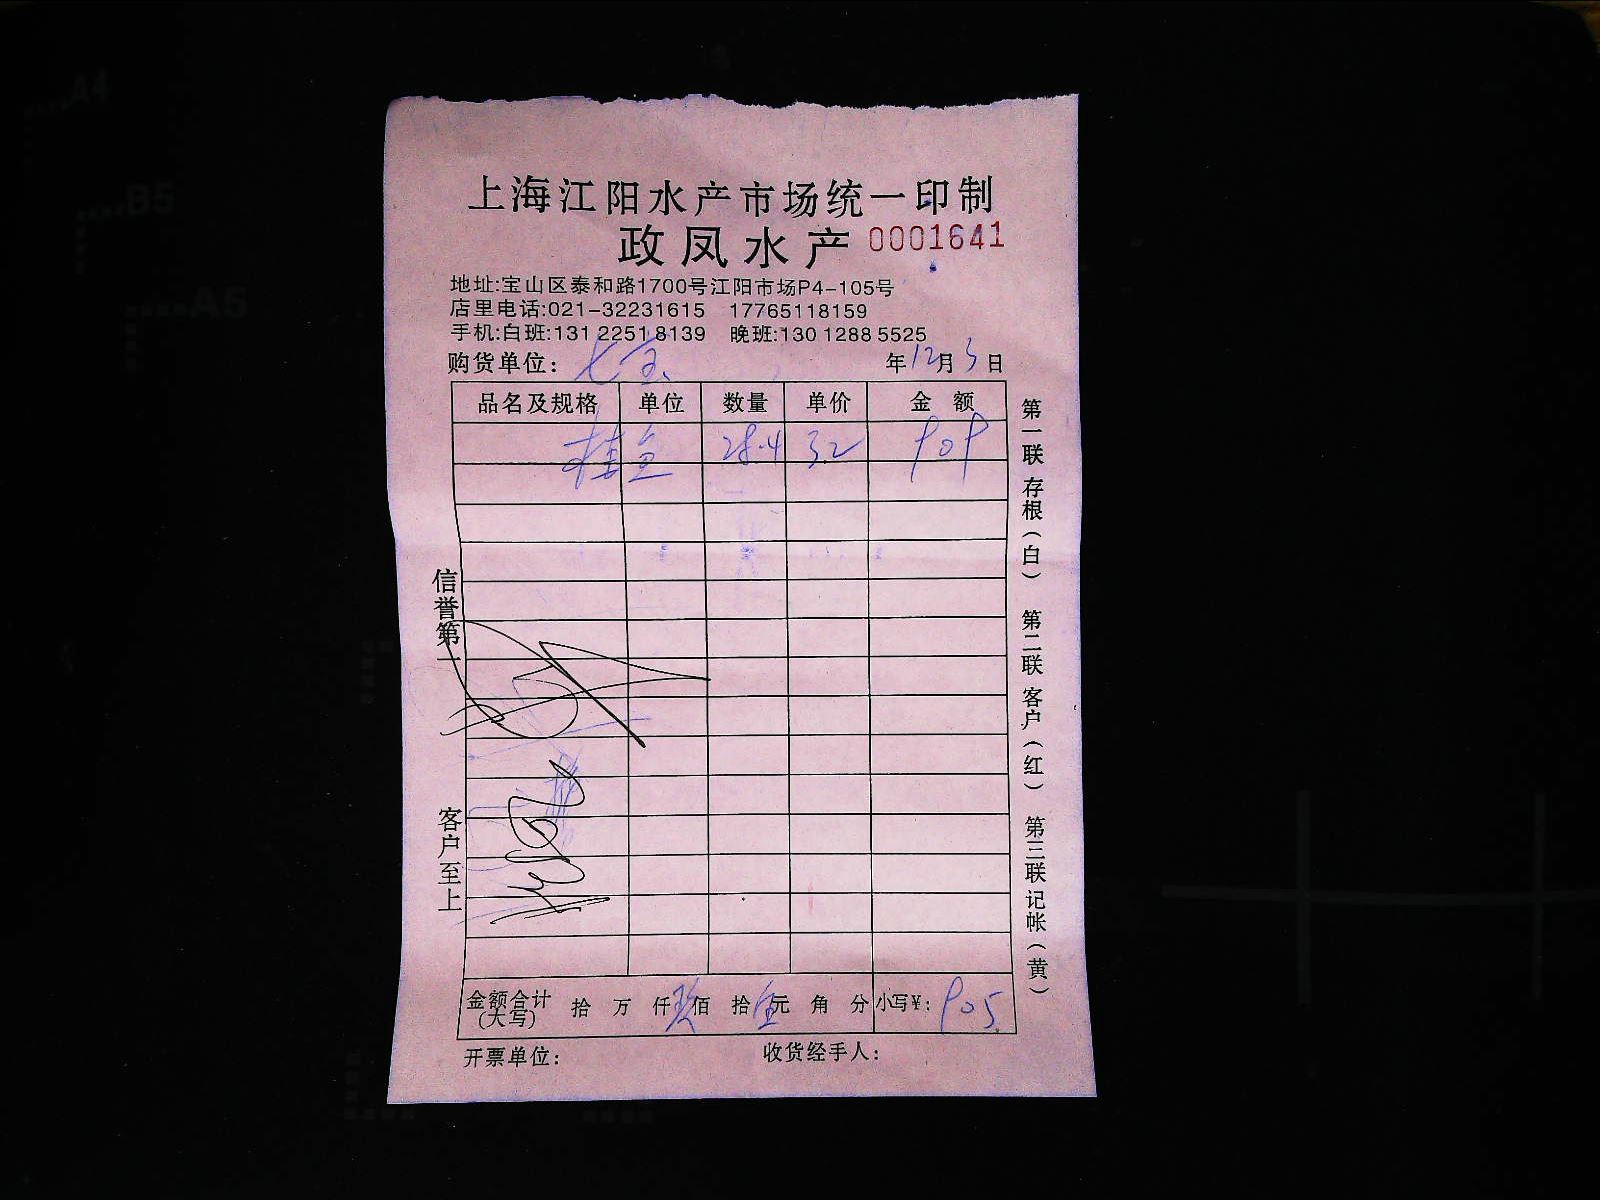 上海江阳水产市场统一印制
政凤水产 0001641
地址:宝山区泰和路1700号江阳市场P4-105号
店里电话:021-32231615 17765118159
手机:白班:131 2251 8139 晚班:130 1288 5525
购货单位: 七宝 年12月3日
品名及规格 单位 数量 单价 金额
桂鱼 28.4 32 909
金额合计(大写) 拾 万 仟 玖佰 拾 元 角 分 小写¥: 905
开票单位: 收货经手人:
信誉第一
客户至上
第一联 存根(白) 第二联 客户(红) 第三联 记帐(黄)
A4
B5
A5